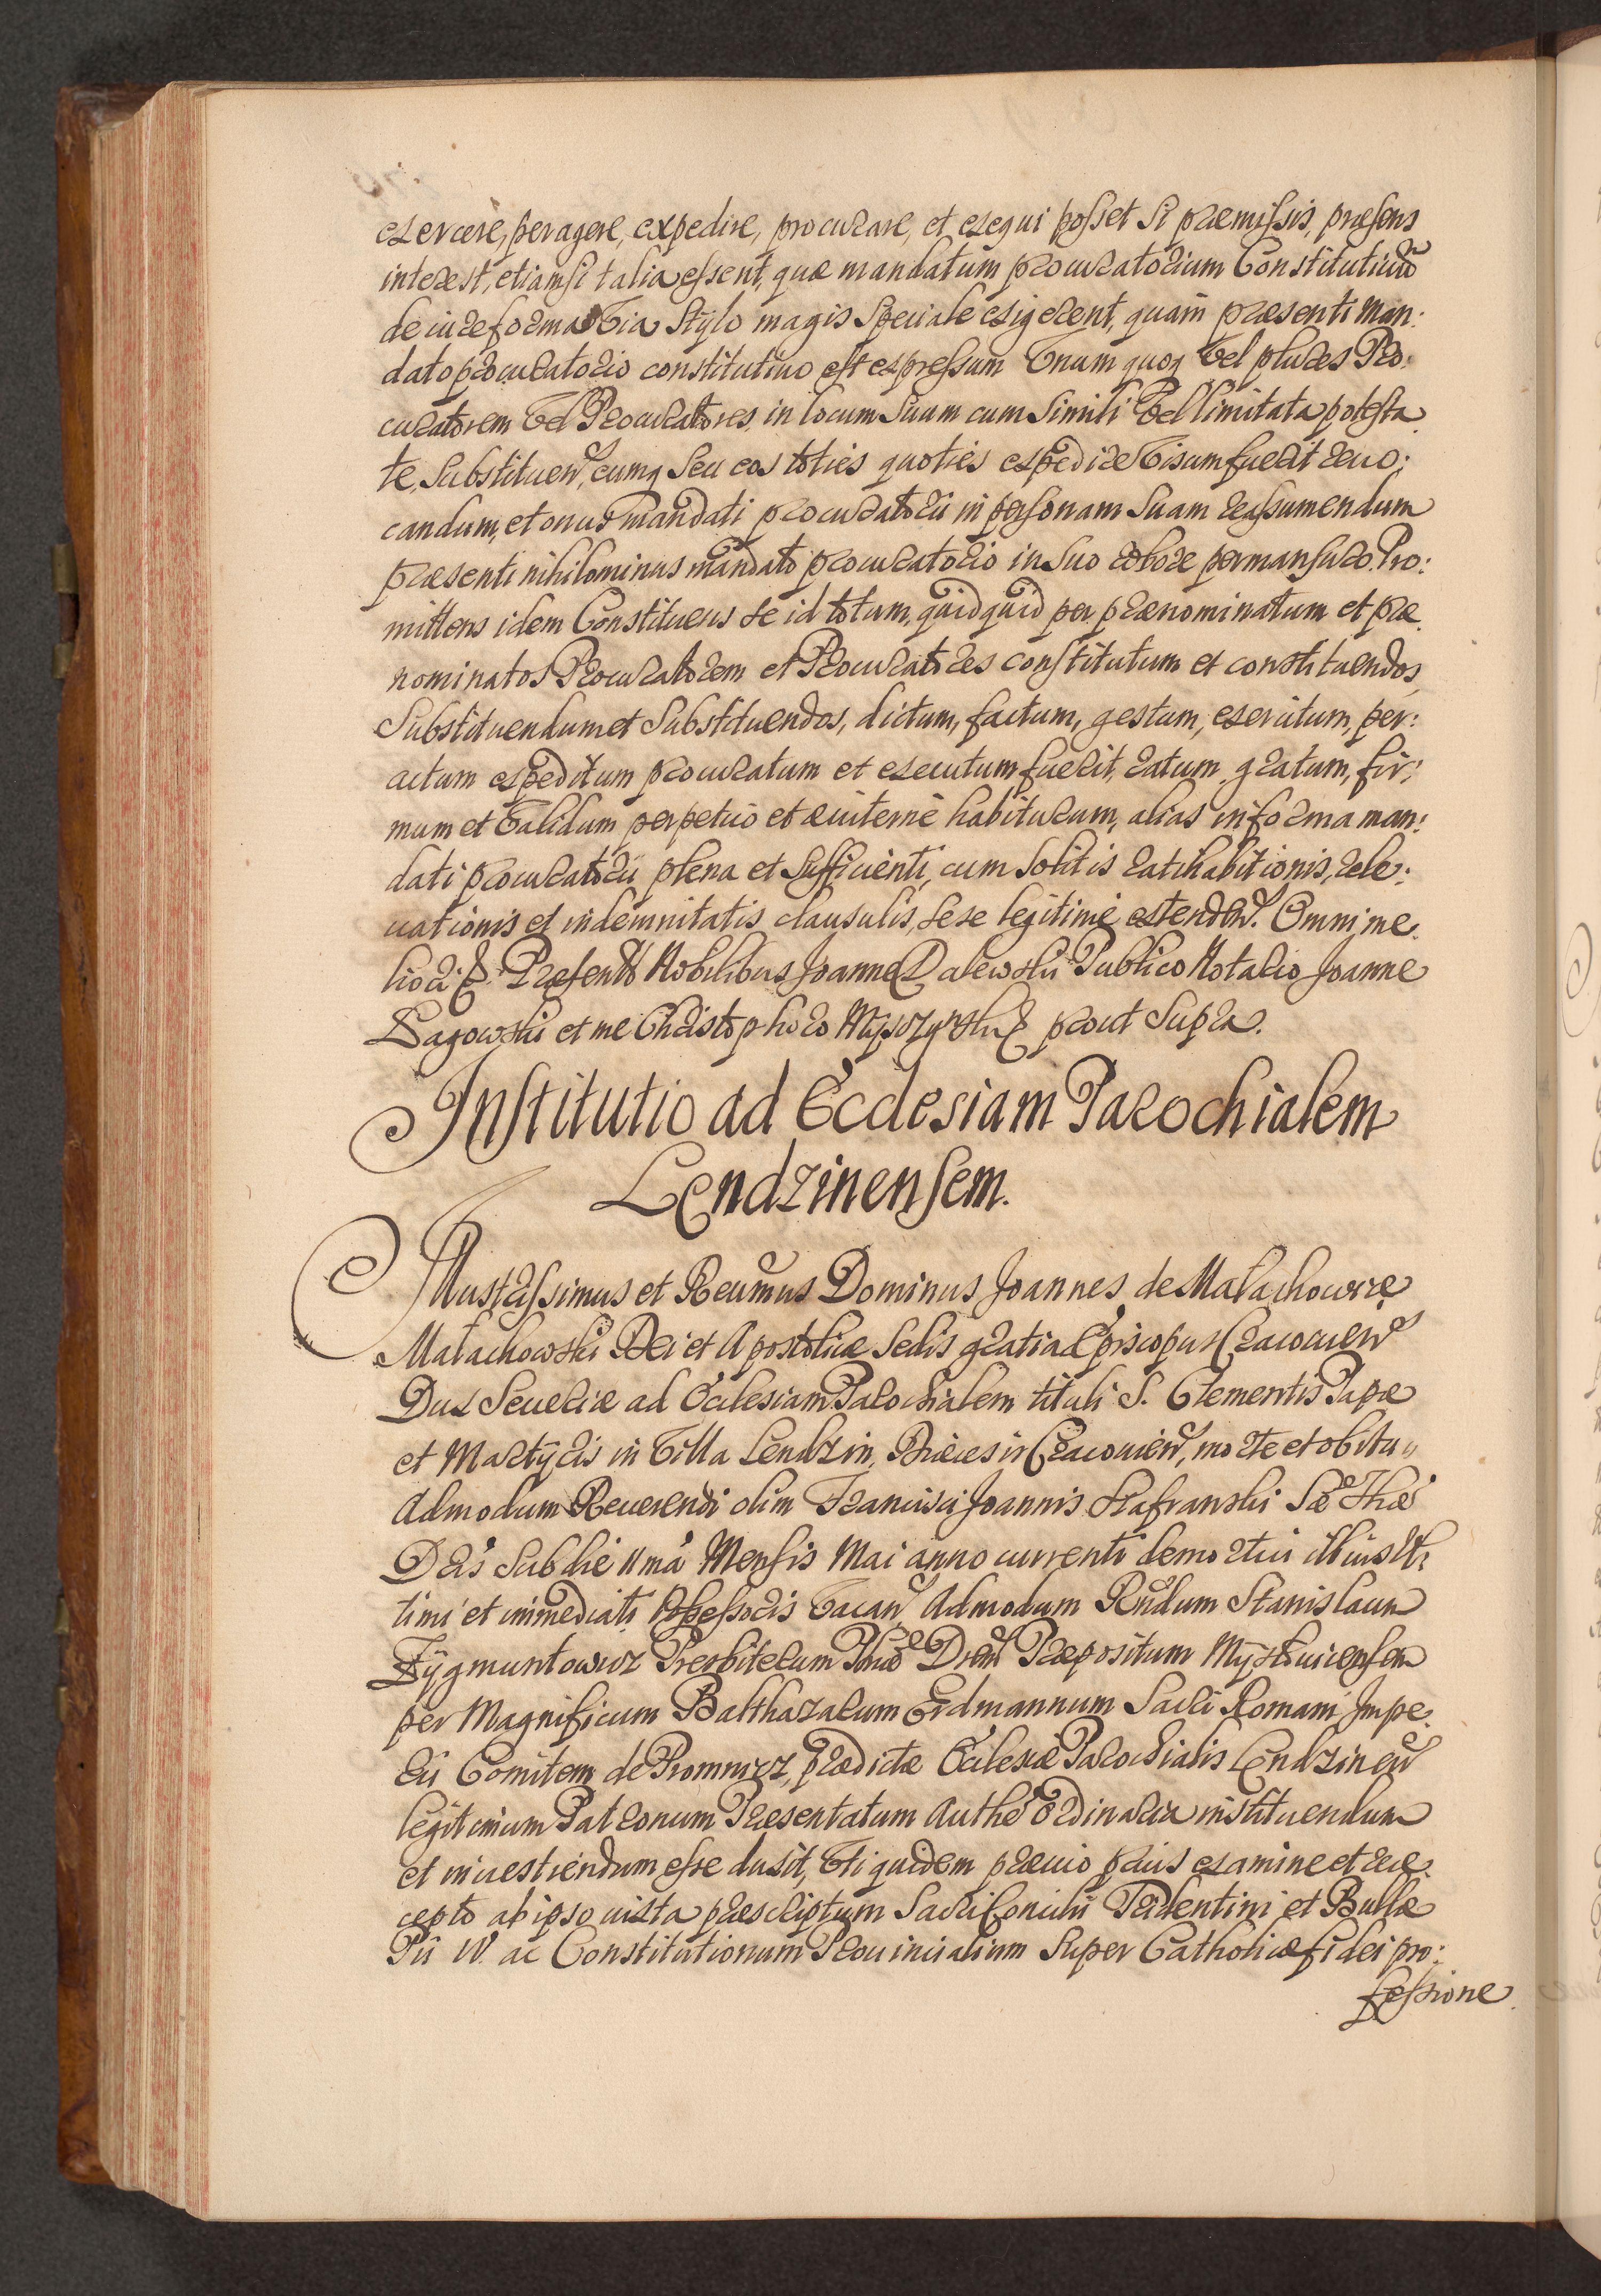 exercere, peragere, expedire, procurare, et exequi posset si præmissis, præsens
interest, etiamsi talia essent, quæ mandatum procuratorium Constitutiuũ
de iure forma Via Stylo magis speciale exigerent, quam præsenti Man:
dato procuratorio constitutiuo est expressum Vnum quoq Vel plures Pro:
curatorem Vel Procuratores in locum Suum cum Simili Vel limitata potesta
te, Substituen, eumq seu eos toties quoties expedire Visum fuerit reuo:
candum, et onus mandati procuratorii in personam Suam reassumendum
præsenti nihilominus mandato procuratorio in Suo robore permansuro. Pro:
mittens idem Constituens se id totum, quidquid per prænominatum et præ
nominatos Procuratorem et Procuratores constitutum et constituendos,
Substituendum et Substituendos, dictum, factum, gestum, exercitum, per:
actum expeditum procuratum et executum fuerit, ratum, gratum, fir:
mum et Validum perpetuò et æuiternè habiturum, alias in forma man:
dati procuratorii plena et Sufficienti, cum Solitis ratihabitionis, rele:
uationis et indemnitatis clausulis, sese legitimè extenden. Omni me
liori Præsentĩb Nobilibus Joanne Dalewski Publico Notario Joanne
Sagowski et me Christophoro prout Supra.
Institutio ad Ecclesiam Parochialem
Lendzinensem.
Illustrissimus et Reumus Dominus Joannes de Małachowice
Małachowski Dei et Apostolicæ Sedis gratia Episcopus Cracouien
Dux Seueriæ ad Ecclesiam Parochialem tituli S. Clementis Papæ
et Martyris in Villa Lendzin, Diæcesis Cracouien, morte et obitu
Admodum Reuerendi olim Francisci Joannis Strafranski Sæ Thæ
Dris Sub die 11mâ Mensis Mai anno currenti demortui illius Vl
timi et immediati Possessoris Vacan, Admodum Rndum Stanislaum
Zygmuntowicz Presbiterum Præpositum
per Magnificum Balthazarum Erdmannum Sacri Romani Impe
rii Comitem de Promnicz, prædictæ Ecclesiæ Parochialis Lendzinen
legitimum Patronum Præsentatum Authe Ordinaria instituendum
et inuestiendum esse duxit, Vti quidem præuio prius examine et rece
cepto ab ipso iuxta præscriptum Sacri Concilii Tridentini et Bullæ
Pii IV. ac Constitutionum Prouincialium Super Catholicæ fidei pro:
fessione